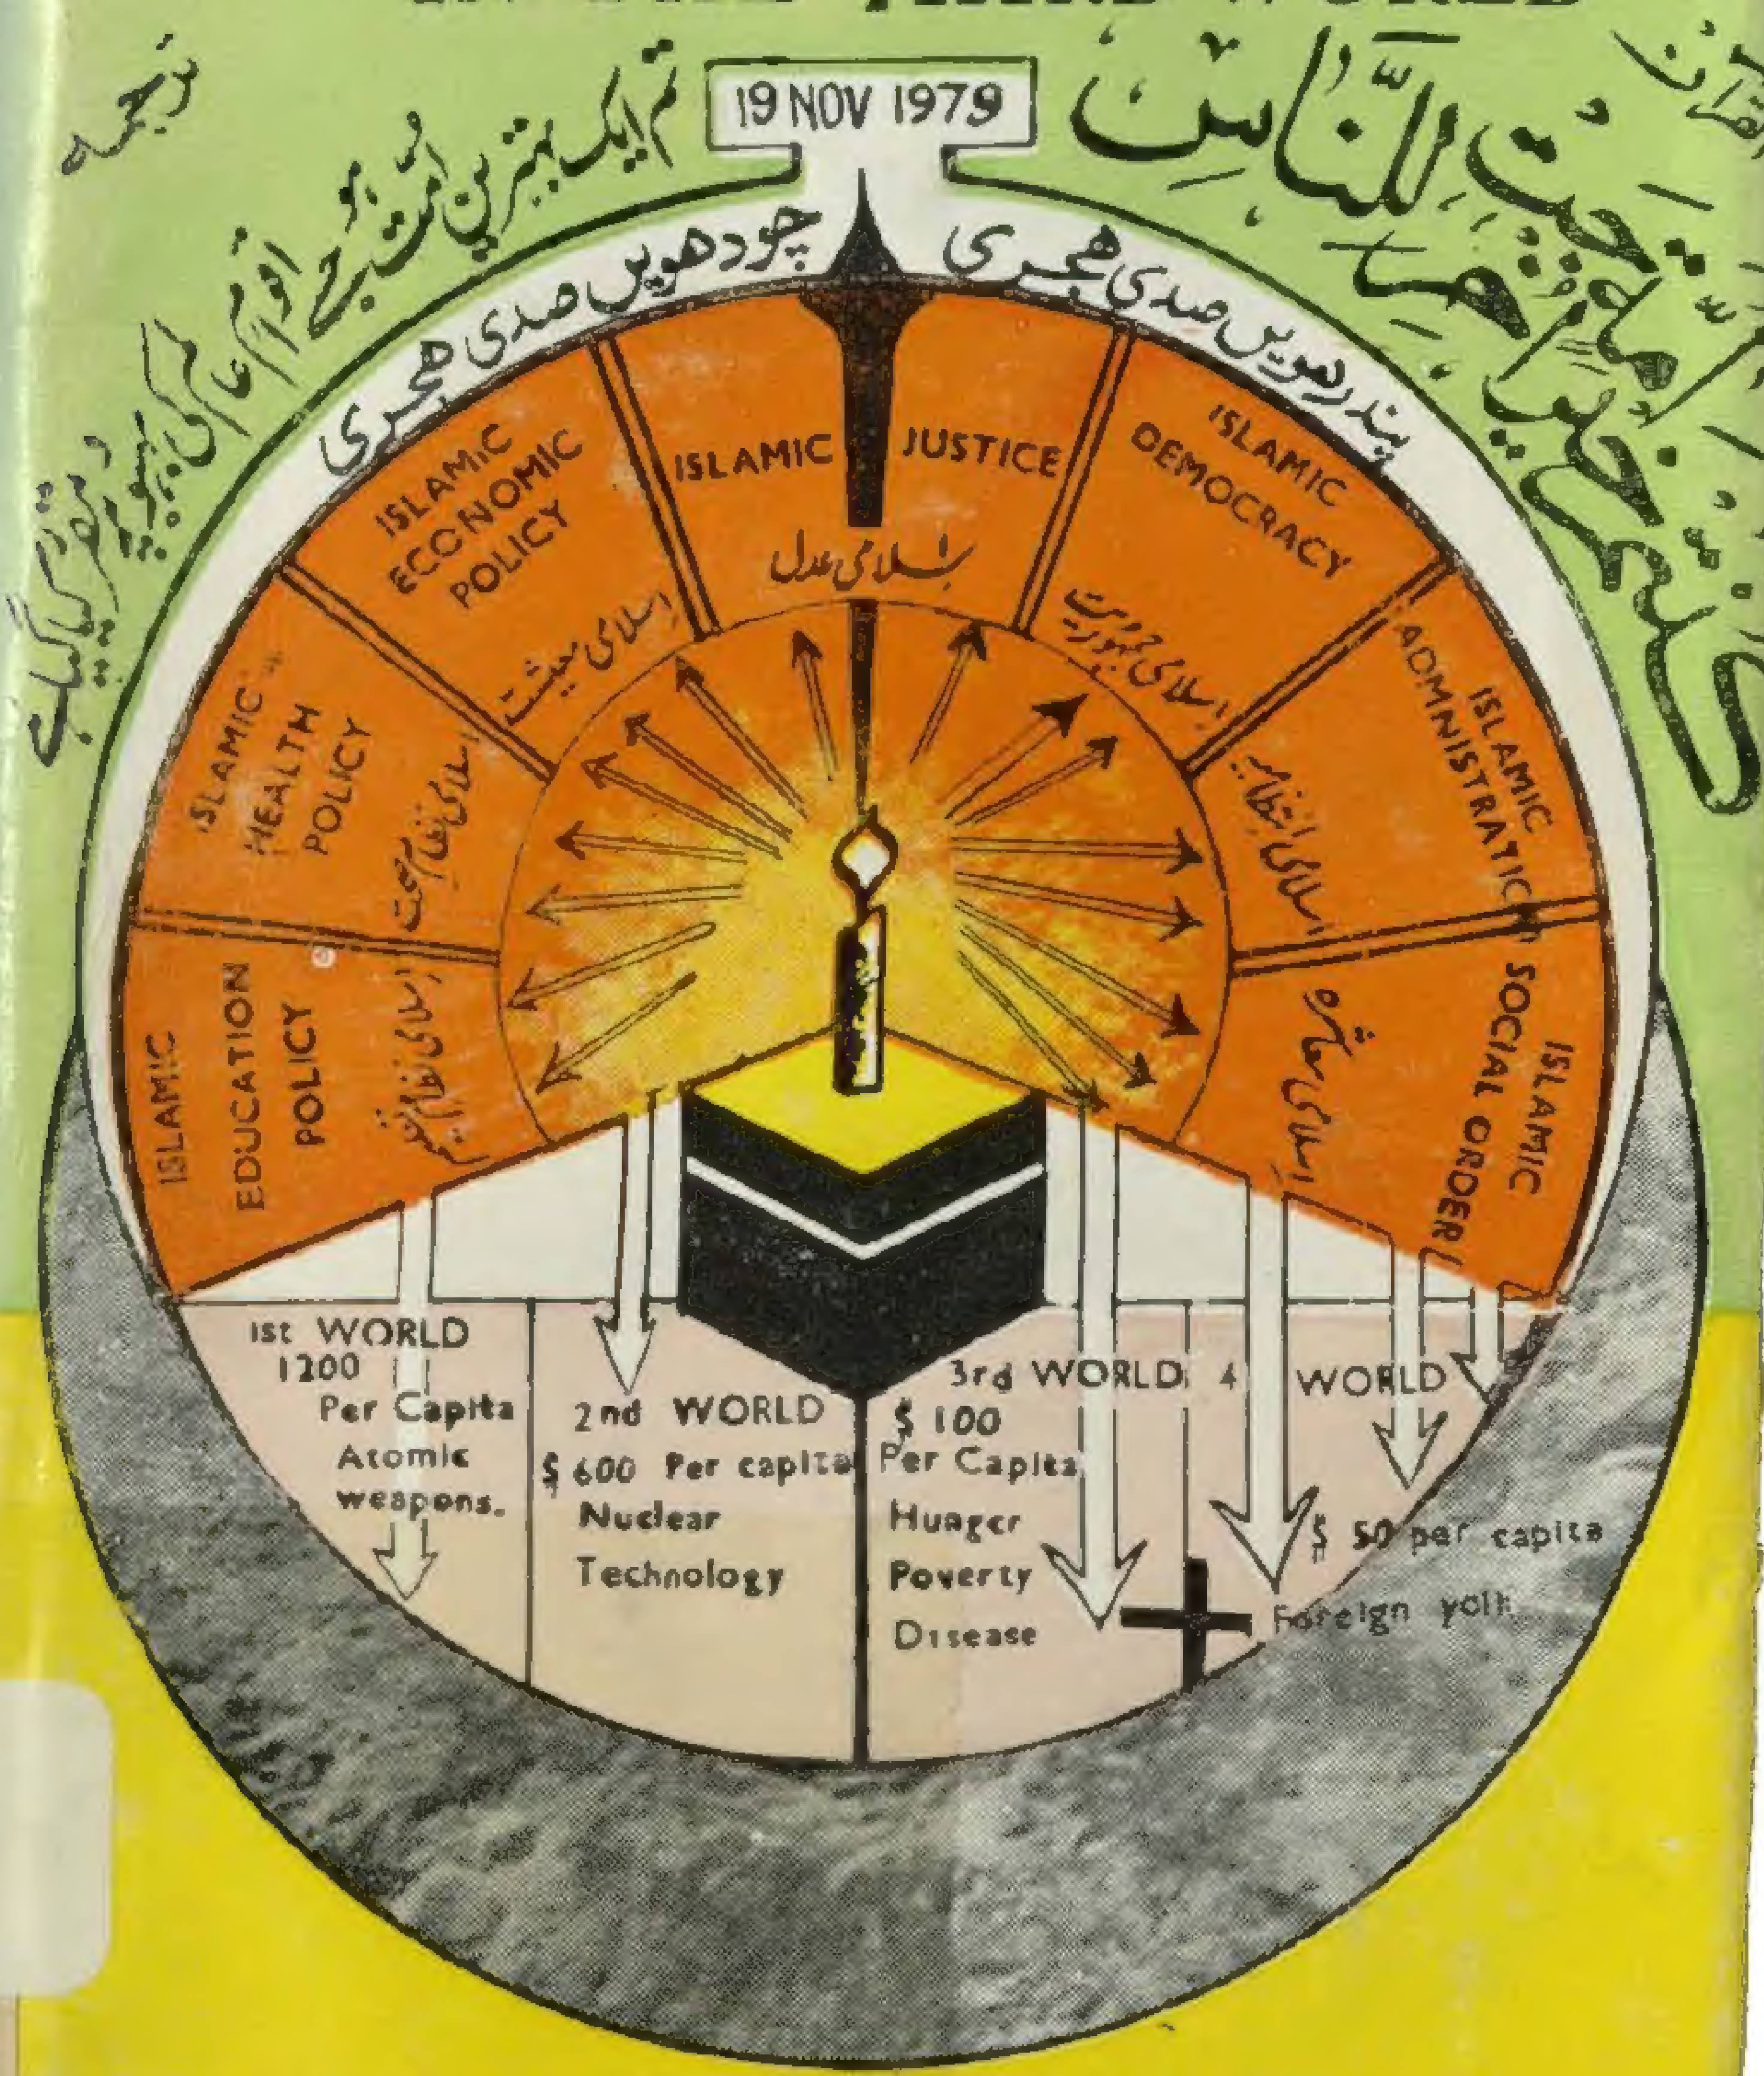 19 NOV 1979
ترجمہ
تم ایک بہترین امت ہو جسے اقوام عالم کی بہبود پر
کنتم خیر امة اخرجت للناس
چودھویں صدی ھجری
پندرھویں صدی ھجری
ISLAMIC
EDUCATION
POLICY
اسلامی نظام تعلیم
ISLAMIC
HEALTH
POLICY
اسلامی نظام صحت
ISLAMIC
ECONOMIC
POLICY
اسلامی معیشت
ISLAMIC JUSTICE
اسلامی عدل
ISLAMIC
DEMOCRACY
اسلامی جمہوریت
ISLAMIC
ADMNISTRATION
اسلامی انتظامیہ
ISLAMIC
SOCIAL ORDER
اسلامی معاشرہ
1st WORLD
1200
Per Capita
Atomic
weapons.
2nd WORLD
$ 600 Per capita
Nuclear
Technology
3rd WORLD
$ 100
Per Capita
Hunger
Poverty
Disease
4 WORLD
$ 50 per capita
Foreign